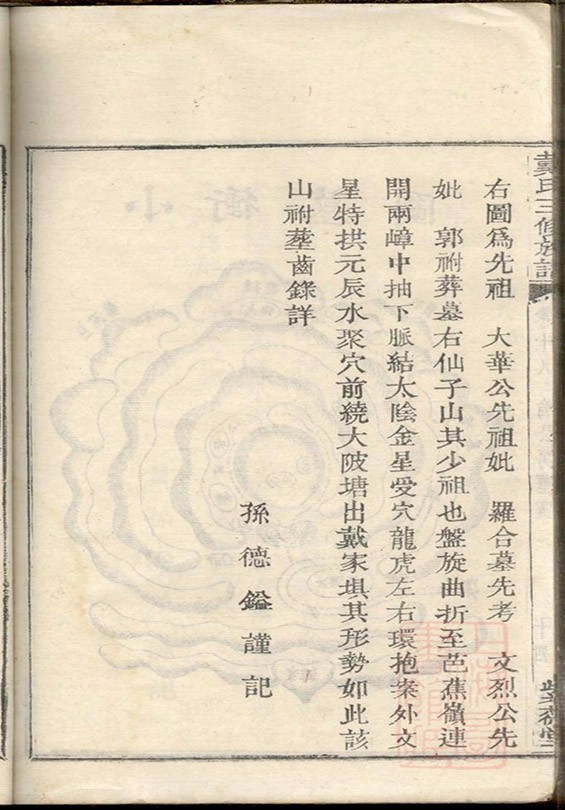 戴氏三修族譜
右圖爲先祖　大華公先祖妣　羅合墓先考　文烈公先
妣　郭祔葬墓右仙子山其少祖也盤旋曲折至芭蕉嶺連
開兩嶂中抽下脈結太陰金星受穴龍虎左右環抱案外文
星特拱元辰水聚穴前繞大陂塘出戴家垻其形勢如此該
山祔塟齒錄詳
孫德鎰謹記